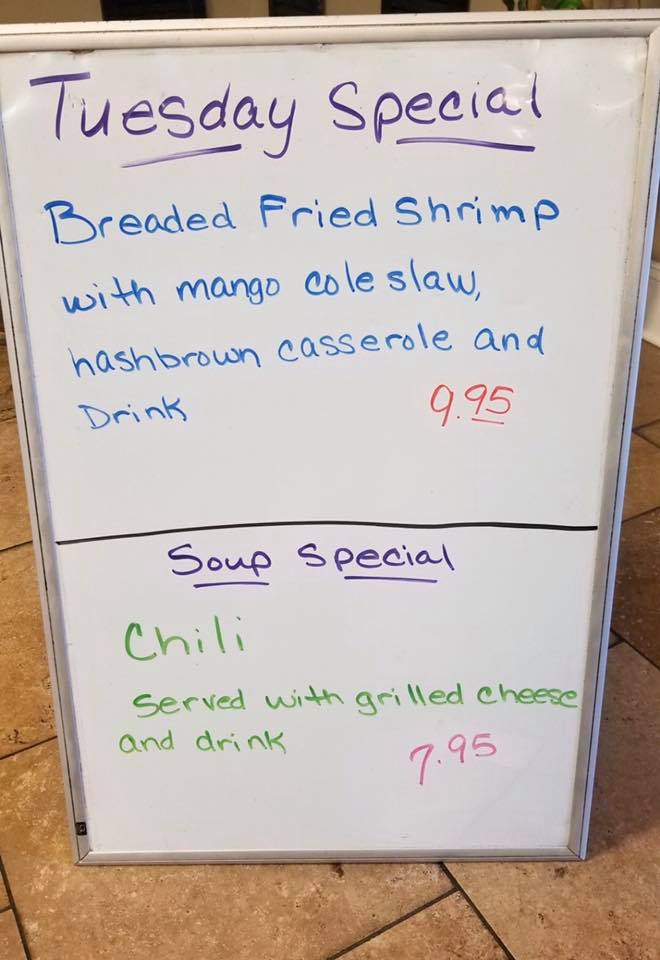 Tuesday Special
Breaded Fried Shrimp
with mango coleslaw,
hashbrown casserole and
Drink 9.95
Soup Special
Chili
Served with grilled cheese
and drink 7.95